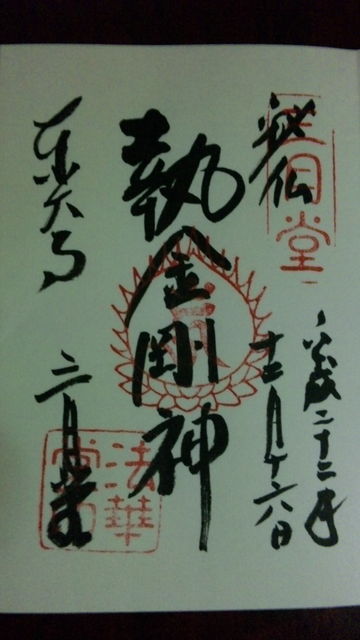 平成二十二年
十二月十六日
秘仏
三月堂
執金剛神
東大寺
三月堂
法華
堂